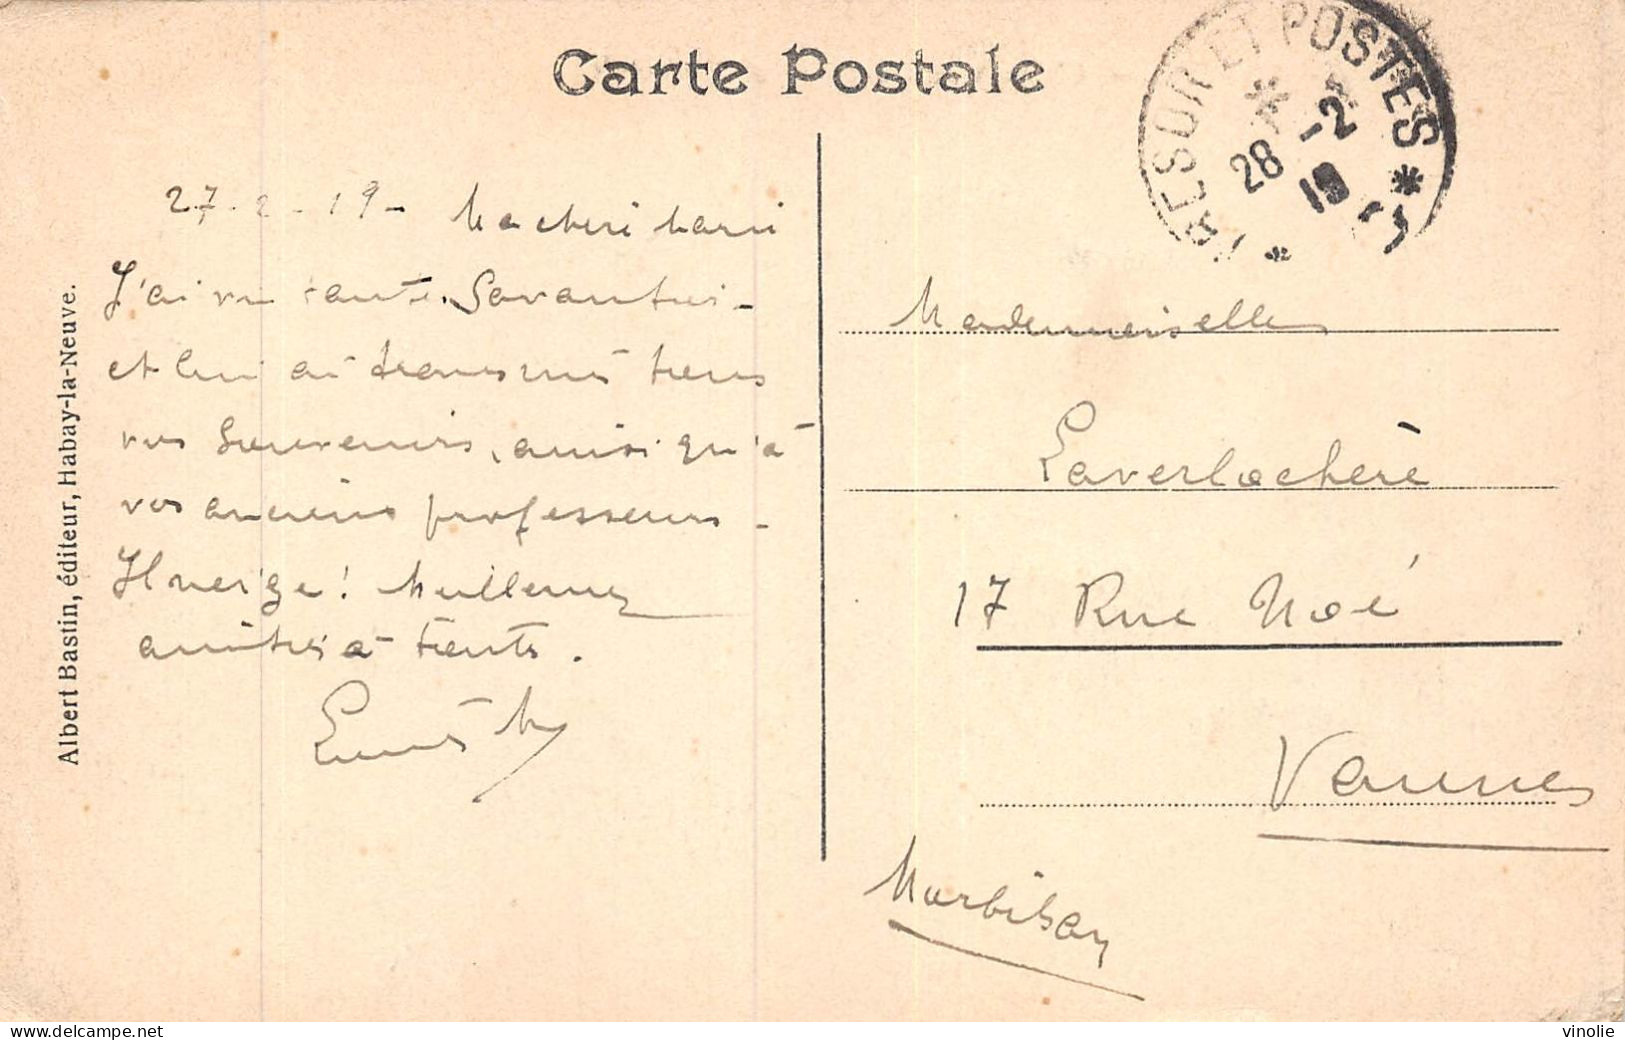 Carte Postale
TRESOR ET POSTES
28 -2 19
27-2-19- Ma chère
J'ai vu tante
et lui ai transmis tous
vos souvenirs, ainsi qu'à
vos anciens professeurs -
Il neige! Meilleures
amitiés à toute.
Mademoiselle
Laverlochère
17 Rue Noé
Vannes
Morbihan
Albert Bastin, éditeur, Habay-la-Neuve.
www.delcampe.net
vinolie